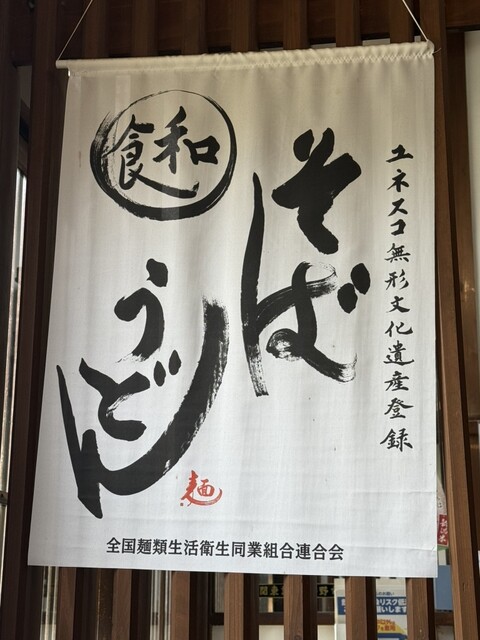 ユネスコ無形文化遺産登録
そば
和食
うどん
麺
全国麺類生活衛生同業組合連合会